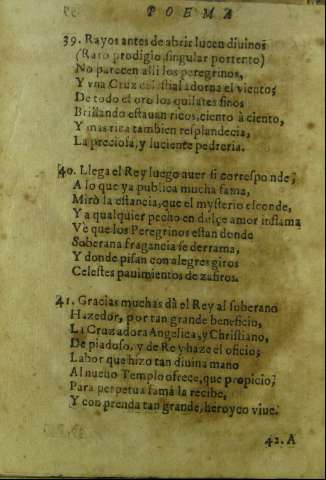 POEMA
39. Rayos antes de abrir lucen diuinos
(Raro prodigio, singular portento)
No parecen alli los peregrinos,
Y vna Cruz celestial adorna el viento;
De todo el oro los quilates finos
Brillando estauan ricos, ciento à ciento,
Y mas rica tambien resplandecia,
La preciosa, y luciente pedreria.
40. Llega el Rey luego a uer si corresponde,
A lo que ya publica mucha fama,
Mirò la estancia, que el mysterio esconde,
Y a qualquier pecho en dulçe amor inflama
Ve que los Peregrinos estan donde
Soberana fragancia se derrama,
Y donde pisan con alegres giros
Celestes pauimientos de zafiros.
41. Gracias muchas dà el Rey al soberano
Hazedor, por tan grande beneficio,
La Cruz adora Angelica, y Christiano,
De piadoso, y de Rey haze el oficio;
Labor que hizo tan diuina mano
Al nueuo Templo ofrece, que propicio,
Para perpetua fama la recibe,
Y con prenda tan grande, heroyco viue.
42. A